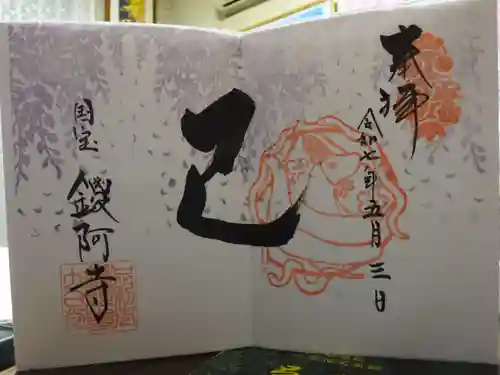 奉拝
令和七年五月三日
己
国宝
鑁阿寺